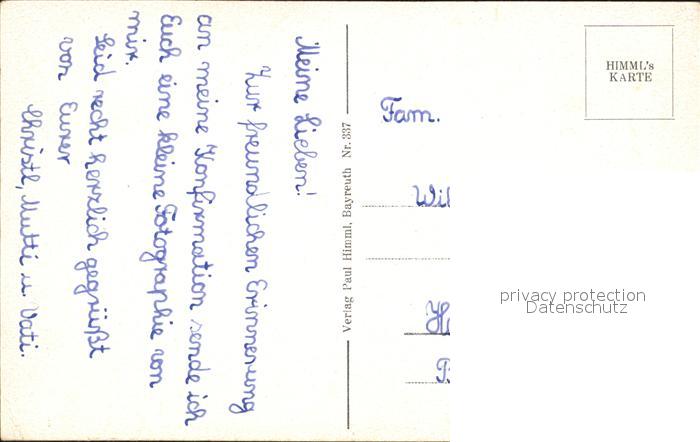 Meine Lieben!
Zur freundlichen Erinnerung
an meine Konfirmation sende ich
Euch eine kleine Fotographie von
mir.
Seid recht herzlich gegrüßt
von Eurer
Christl, Mutti u. Vati.
Verlag Paul Himml, Bayreuth Nr. 337
HIMML's
KARTE
Fam.
privacy protection
Datenschutz